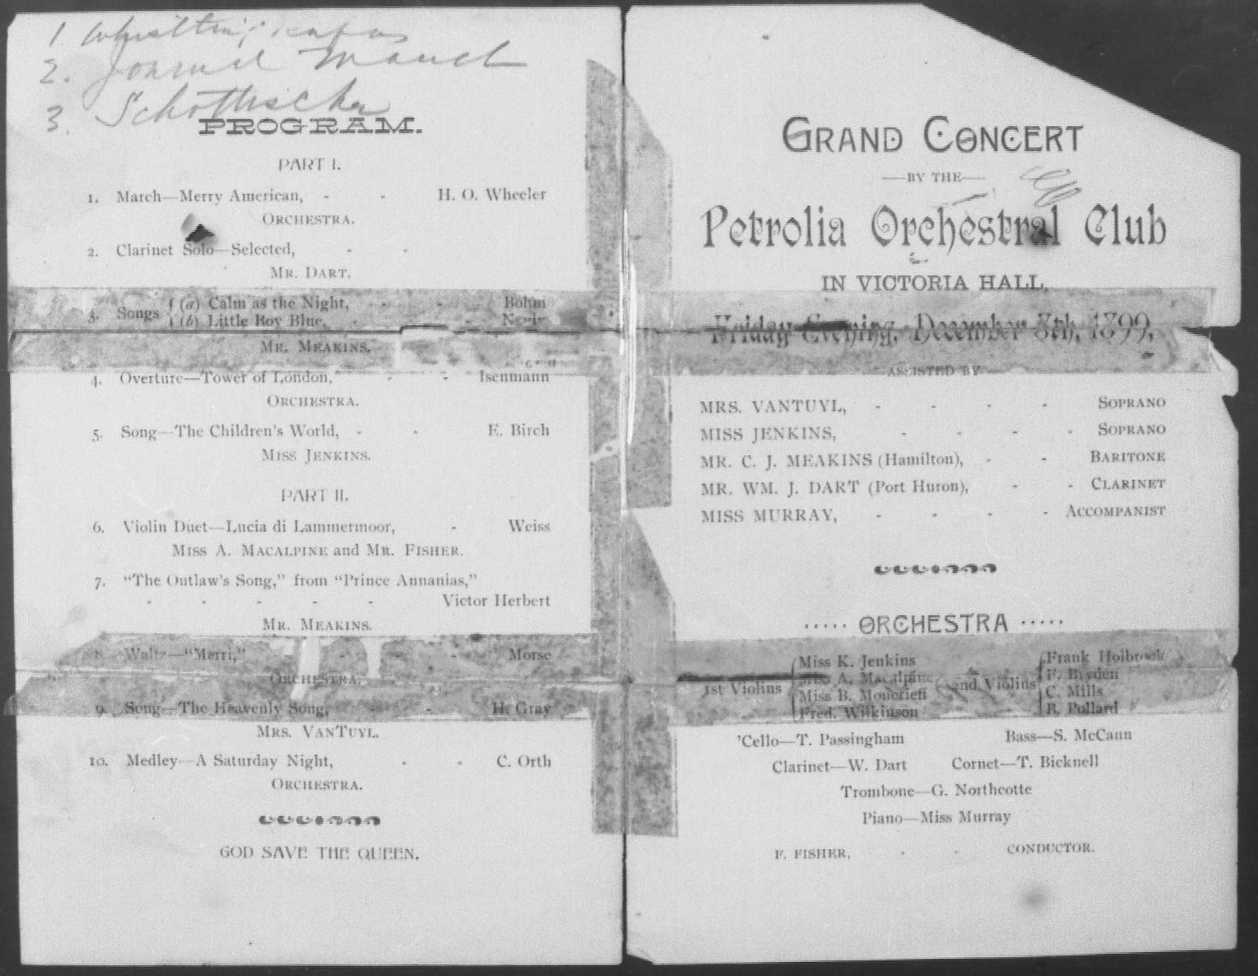 1
2.
3. Schottische
PROGRAM.
PART I.
1. March—Merry American, - - H. O. Wheeler
ORCHESTRA.
2. Clarinet Solo—Selected, - -
MR. DART.
3. Songs { (a) Calm as the Night, - - Bohm
(b) Little Boy Blue, - - Nevin
MR. MEAKINS.
4. Overture—Tower of London, - - Isenmann
ORCHESTRA.
5. Song—The Children's World, - - E. Birch
MISS JENKINS.
PART II.
6. Violin Duet—Lucia di Lammermoor, - Weiss
MISS A. MACALPINE and MR. FISHER.
7. "The Outlaw's Song," from "Prince Annanias,"
- - - - - Victor Herbert
MR. MEAKINS.
8. Waltz—"Merri," - - - Morse
ORCHESTRA.
9. Song—The Heavenly Song, - - H. Gray
MRS. VANTUYL.
10. Medley—A Saturday Night, - - C. Orth
ORCHESTRA.
GOD SAVE THE QUEEN.
GRAND CONCERT
—BY THE—
Petrolia Orchestral Club
IN VICTORIA HALL,
Friday Evening, December 8th, 1899,
ASSISTED BY
MRS. VANTUYL, - - - - SOPRANO
MISS JENKINS, - - - - SOPRANO
MR. C. J. MEAKINS (Hamilton), - - BARITONE
MR. WM. J. DART (Port Huron), - - CLARINET
MISS MURRAY, - - - - ACCOMPANIST
..... ORCHESTRA .....
1st Violins { Miss K. Jenkins
Miss A. Macalpine
Miss B. Moncrieff
Fred. Wilkinson
2nd Violins { Frank Holbrook
F. Bryden
C. Mills
B. Pollard
'Cello—T. Passingham Bass—S. McCann
Clarinet—W. Dart Cornet—T. Bicknell
Trombone—G. Northcotte
Piano—Miss Murray
F. FISHER, - - CONDUCTOR.